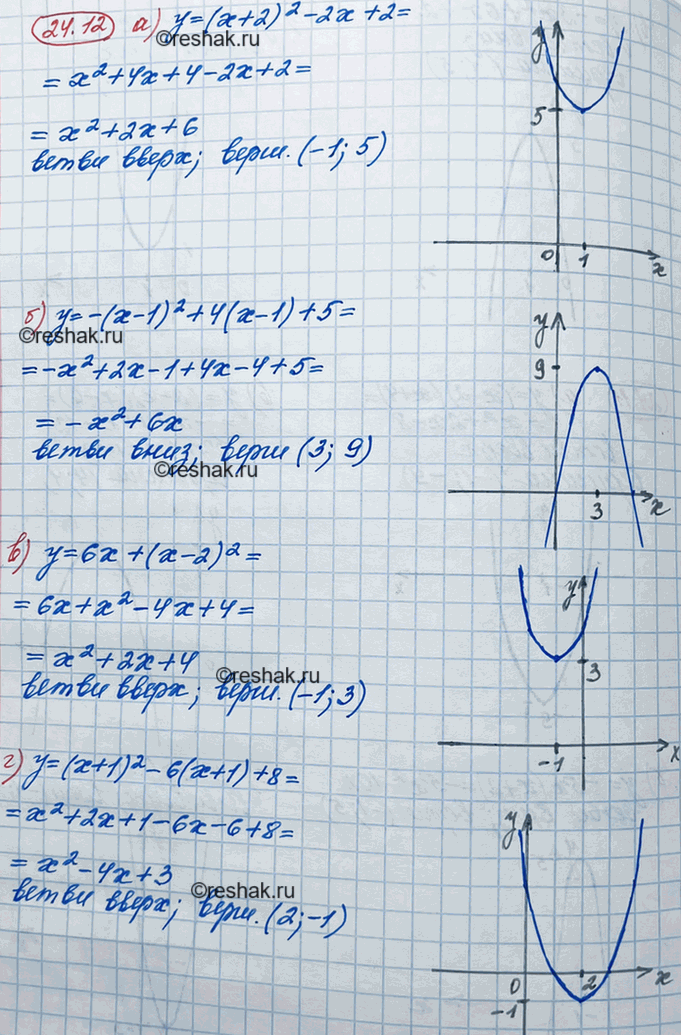 24.12 а) y=(x+2)²-2x+2=
©reshak.ru
=x²+4x+4-2x+2=
=x²+2x+6
ветви вверх; верш. (-1; 5)
y
5
0 1 x
б) y=-(x-1)²+4(x-1)+5=
©reshak.ru
=-x²+2x-1+4x-4+5=
=-x²+6x
ветви вниз; верш (3; 9)
©reshak.ru
y
9
3 x
в) y=6x+(x-2)²=
=6x+x²-4x+4=
=x²+2x+4
©reshak.ru
ветви вверх; верш. (-1; 3)
y
3
-1 x
г) y=(x+1)²-6(x+1)+8=
=x²+2x+1-6x-6+8=
=x²-4x+3
©reshak.ru
ветви вверх; верш. (2; -1)
y
0 2 x
-1